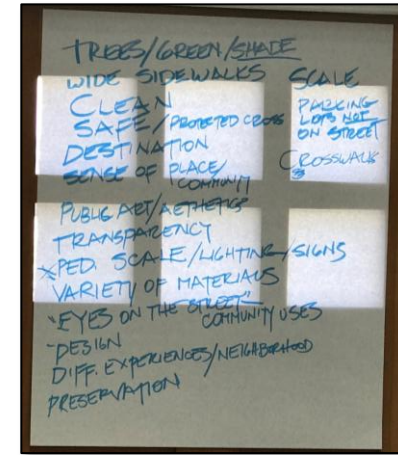 TREES/GREEN/SHADE
WIDE SIDEWALKS
CLEAN
SAFE/PROTECTED CROSS
DESTINATION
SENSE OF PLACE/
COMMUNITY
SCALE
PARKING
LOTS NOT
ON STREET
CROSSWALKS
PUBLIC ART/AETHETICS
TRANSPARENCY
PED. SCALE/LIGHTING/SIGNS
VARIETY OF MATERIALS
"EYES ON THE STREET"
COMMUNITY USES
-DESIGN
DIFF. EXPERIENCES/NEIGHBORHOOD
PRESERVATION